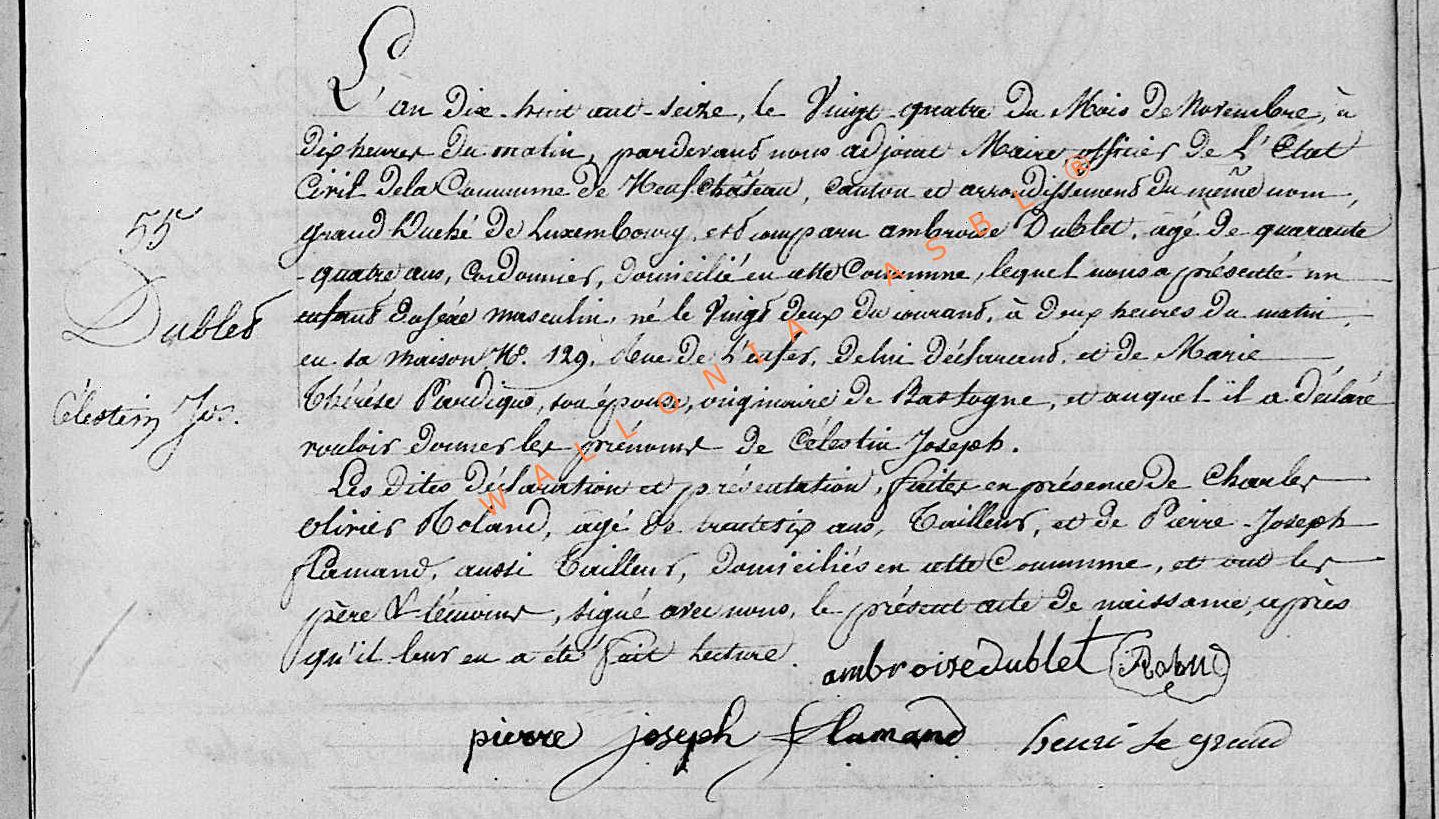 L'an dix-huit cent-seize, le Vingt-quatre du Mois de Novembre, à
dix heures du matin, pardevant nous adjoint Maire officier de L'État
Civil de la Commune de Neufchâteau, canton et arrondissement du même nom,
grand Duché de Luxembourg, est comparu ambroise Dublet, agé de quarante
-quatre ans, Cordonnier, domicilié en cette Commune, lequel nous a présenté un
enfant du sexe masculin, né le Vingt deux du courant, à deux heures du matin,
en sa maison N°. 129, Rue de L'enfer, de lui déclarant, et de Marie
Thérése, son épouse, originaire de Bastogne, et auquel il a déclaré
vouloir donner les prénoms de Célestin Joseph.
Les dites déclaration et présentation, faites en présence de Charles
Olivier Roland, agé de trente six ans, Tailleur, et de Pierre-Joseph
flamand, aussi Tailleur, domiciliés en cette Commune, et ont les
père & témoins, signé avec nous, le présent acte de naissance, après
qu'il leur en a été fait lecture.
55e
Dublet
Célestin Jos.
ambroise dublet
pierre joseph flamand henri le grand
WALLONIA ASBL ®